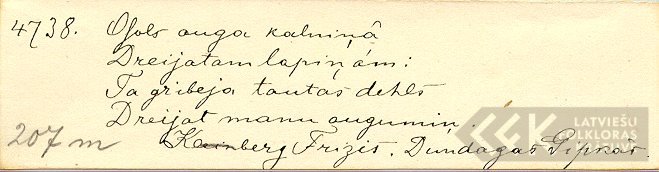 4738. Osols auga kalniņâ
Dreijatam lapiņám:
Ta gribeja tautas dehls
Dreijat manu augumiņ
207 m
berg Frizis. Dundagas Gipkâs.
LATVIEŠU
FOLKLORAS